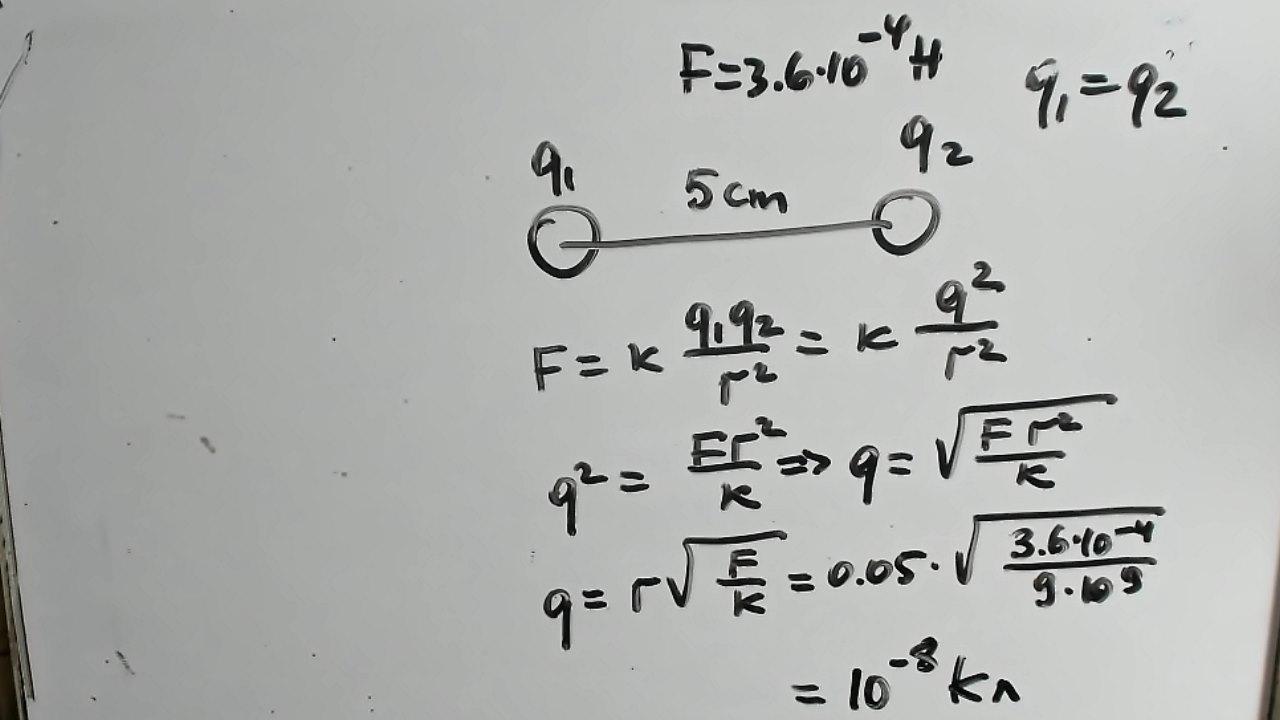 F=3.6·10⁻⁴H q₁=q₂
q₁ 5cm q₂
F = k q₁q₂/r² = k q²/r²
q² = Fr²/k ⇒ q = √(Fr²/k)
q = r√(F/k) = 0.05·√(3.6·10⁻⁴/9·10⁹)
= 10⁻⁸ Кл